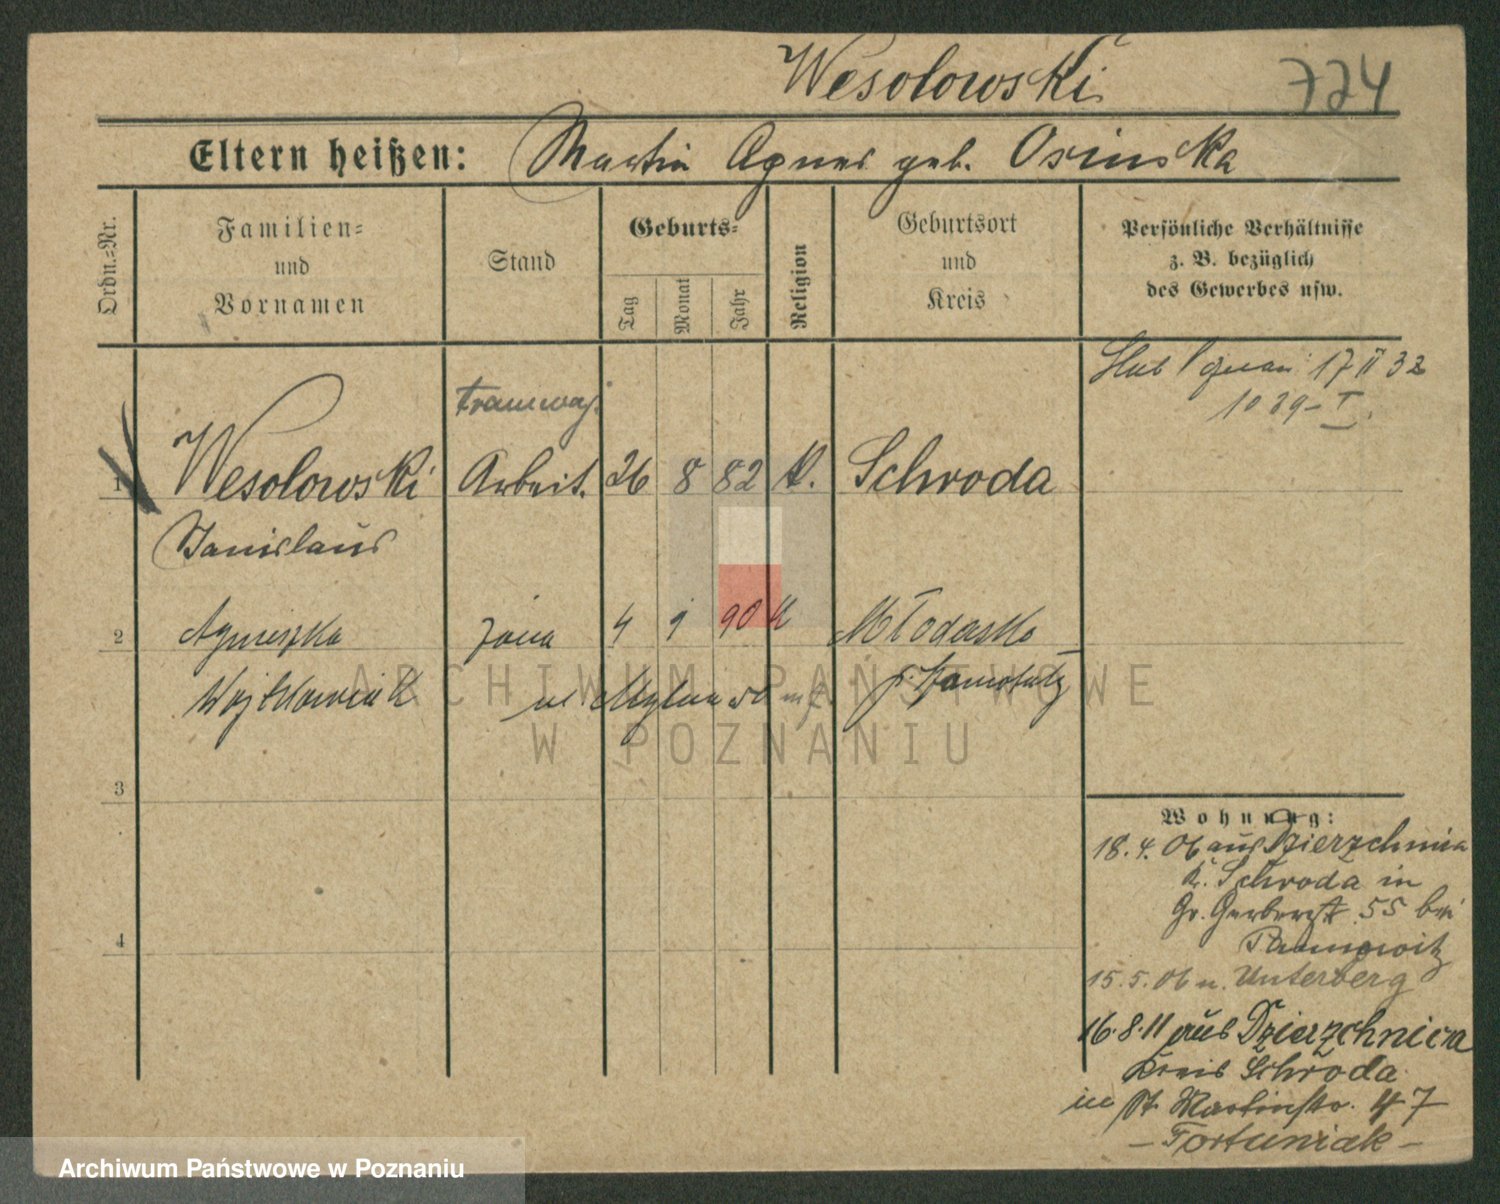 Wesolowski
724
Eltern heißen: Martin Agnes geb. Osinska
Ordn.-Nr.
Familien-
und
Vornamen
Stand
Geburts-
Tag
Monat
Jahr
Religion
Geburtsort
und
Kreis
Persönliche Verhältnisse
z. B. bezüglich
des Gewerbes usw.
Slub 17 II 32
1039-I.
tramwaj.
1 Wesolowski Arbeit. 26 8 82 K. Schroda
Stanislaus
2 Agnieszka żona 4 9 90 K Młodasko
Wojtkowiak ul.
ARCHIWUM PAŃSTWOWE
W POZNANIU
3
4
Wohnung:
18.4.06 aus Dzierzchnica
K. Schroda in
Gr. Gerberstr. 55 bei
15.5.06 n. Unterberg
16.8.11 aus Dzierzchnica
Kreis Schroda
in St. Martinstr. 47
- Fortuniak -
Archiwum Państwowe w Poznaniu